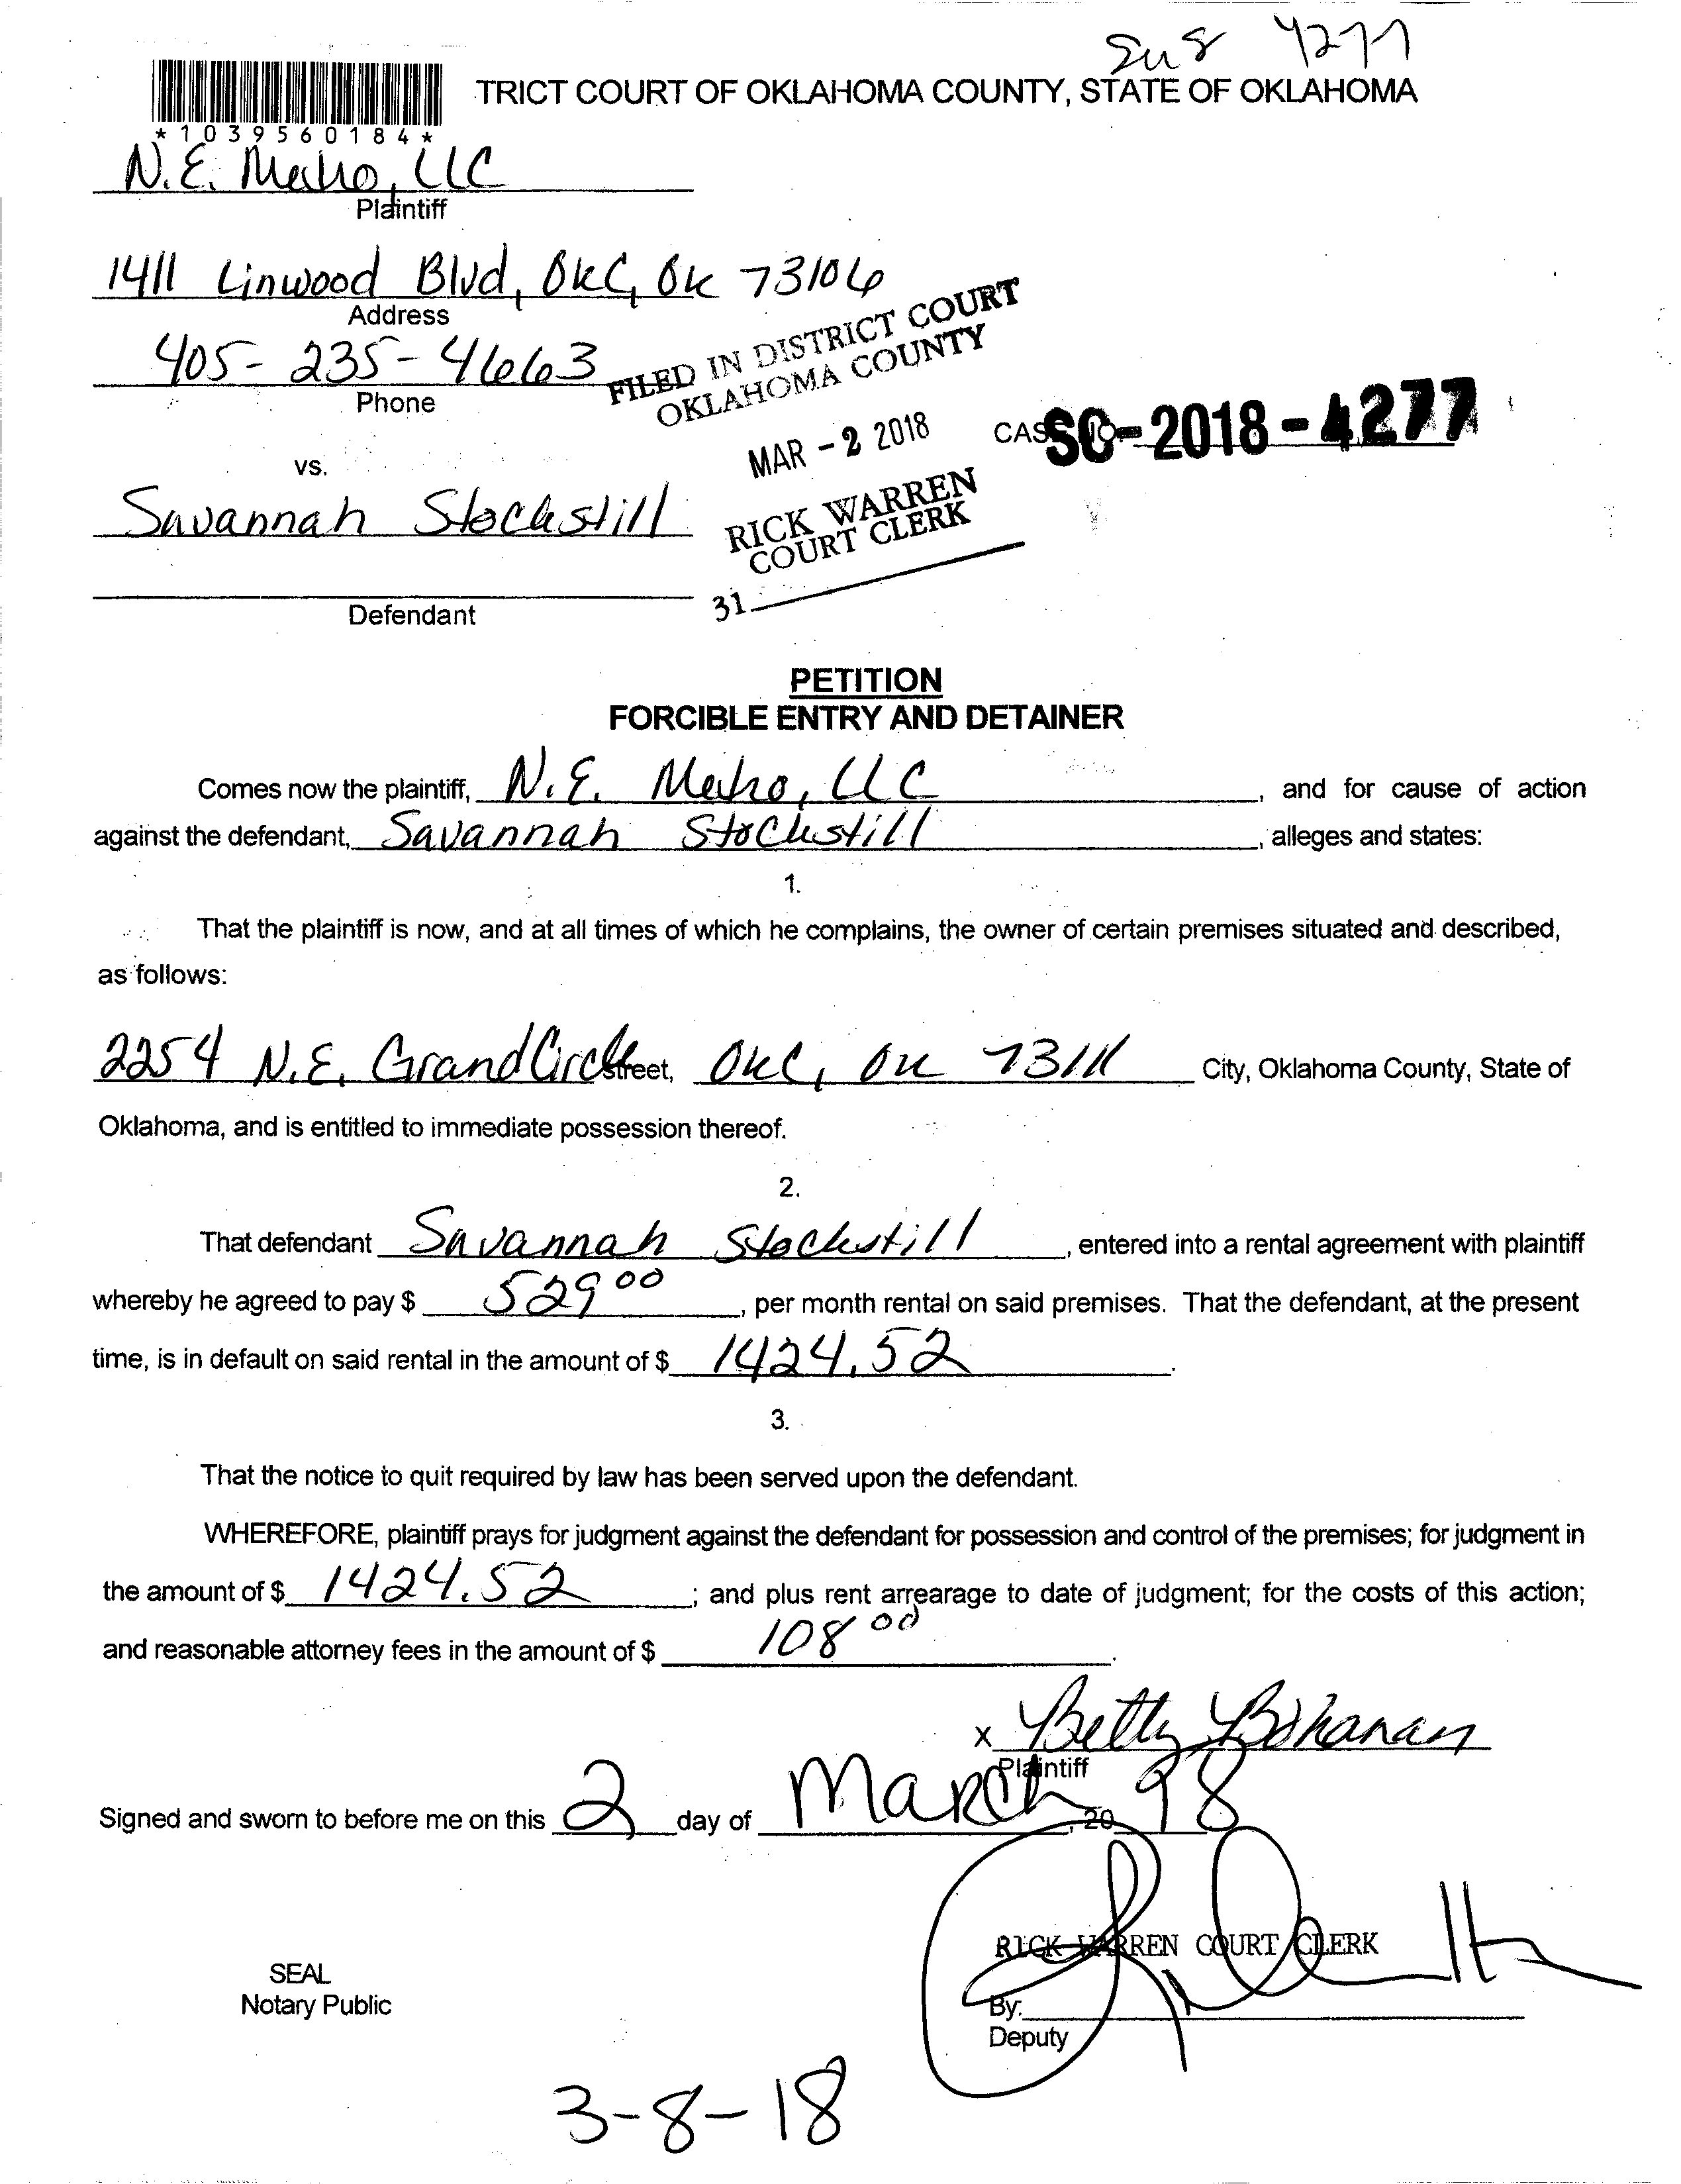 4277
TRICT COURT OF OKLAHOMA COUNTY, STATE OF OKLAHOMA
*1039560184*
N.E. Metro, LLC
Plaintiff
1411 Linwood Blvd, OKC, OK 73106
Address
405-235-4663
Phone
FILED IN DISTRICT COURT
OKLAHOMA COUNTY
MAR - 2 2018
CASE NO. SC-2018-4277
vs.
Savannah Stockstill
RICK WARREN
COURT CLERK
31
Defendant
PETITION
FORCIBLE ENTRY AND DETAINER
Comes now the plaintiff, N.E. Metro, LLC, and for cause of action
against the defendant, Savannah Stockstill, alleges and states:
1.
That the plaintiff is now, and at all times of which he complains, the owner of certain premises situated and described,
as follows:
2254 N.E. Grand Circle Street, OKC, OK 73111 City, Oklahoma County, State of
Oklahoma, and is entitled to immediate possession thereof.
2.
That defendant Savannah Stockstill, entered into a rental agreement with plaintiff
whereby he agreed to pay $ 529 00, per month rental on said premises. That the defendant, at the present
time, is in default on said rental in the amount of $ 1424.52.
3.
That the notice to quit required by law has been served upon the defendant.
WHEREFORE, plaintiff prays for judgment against the defendant for possession and control of the premises; for judgment in
the amount of $ 1424.52; and plus rent arrearage to date of judgment; for the costs of this action;
and reasonable attorney fees in the amount of $ 108 00.
x Betty Bohanan
Plaintiff
Signed and sworn to before me on this 2 day of March, 20 18
RICK WARREN COURT CLERK
SEAL
Notary Public
By:
Deputy
3-8-18